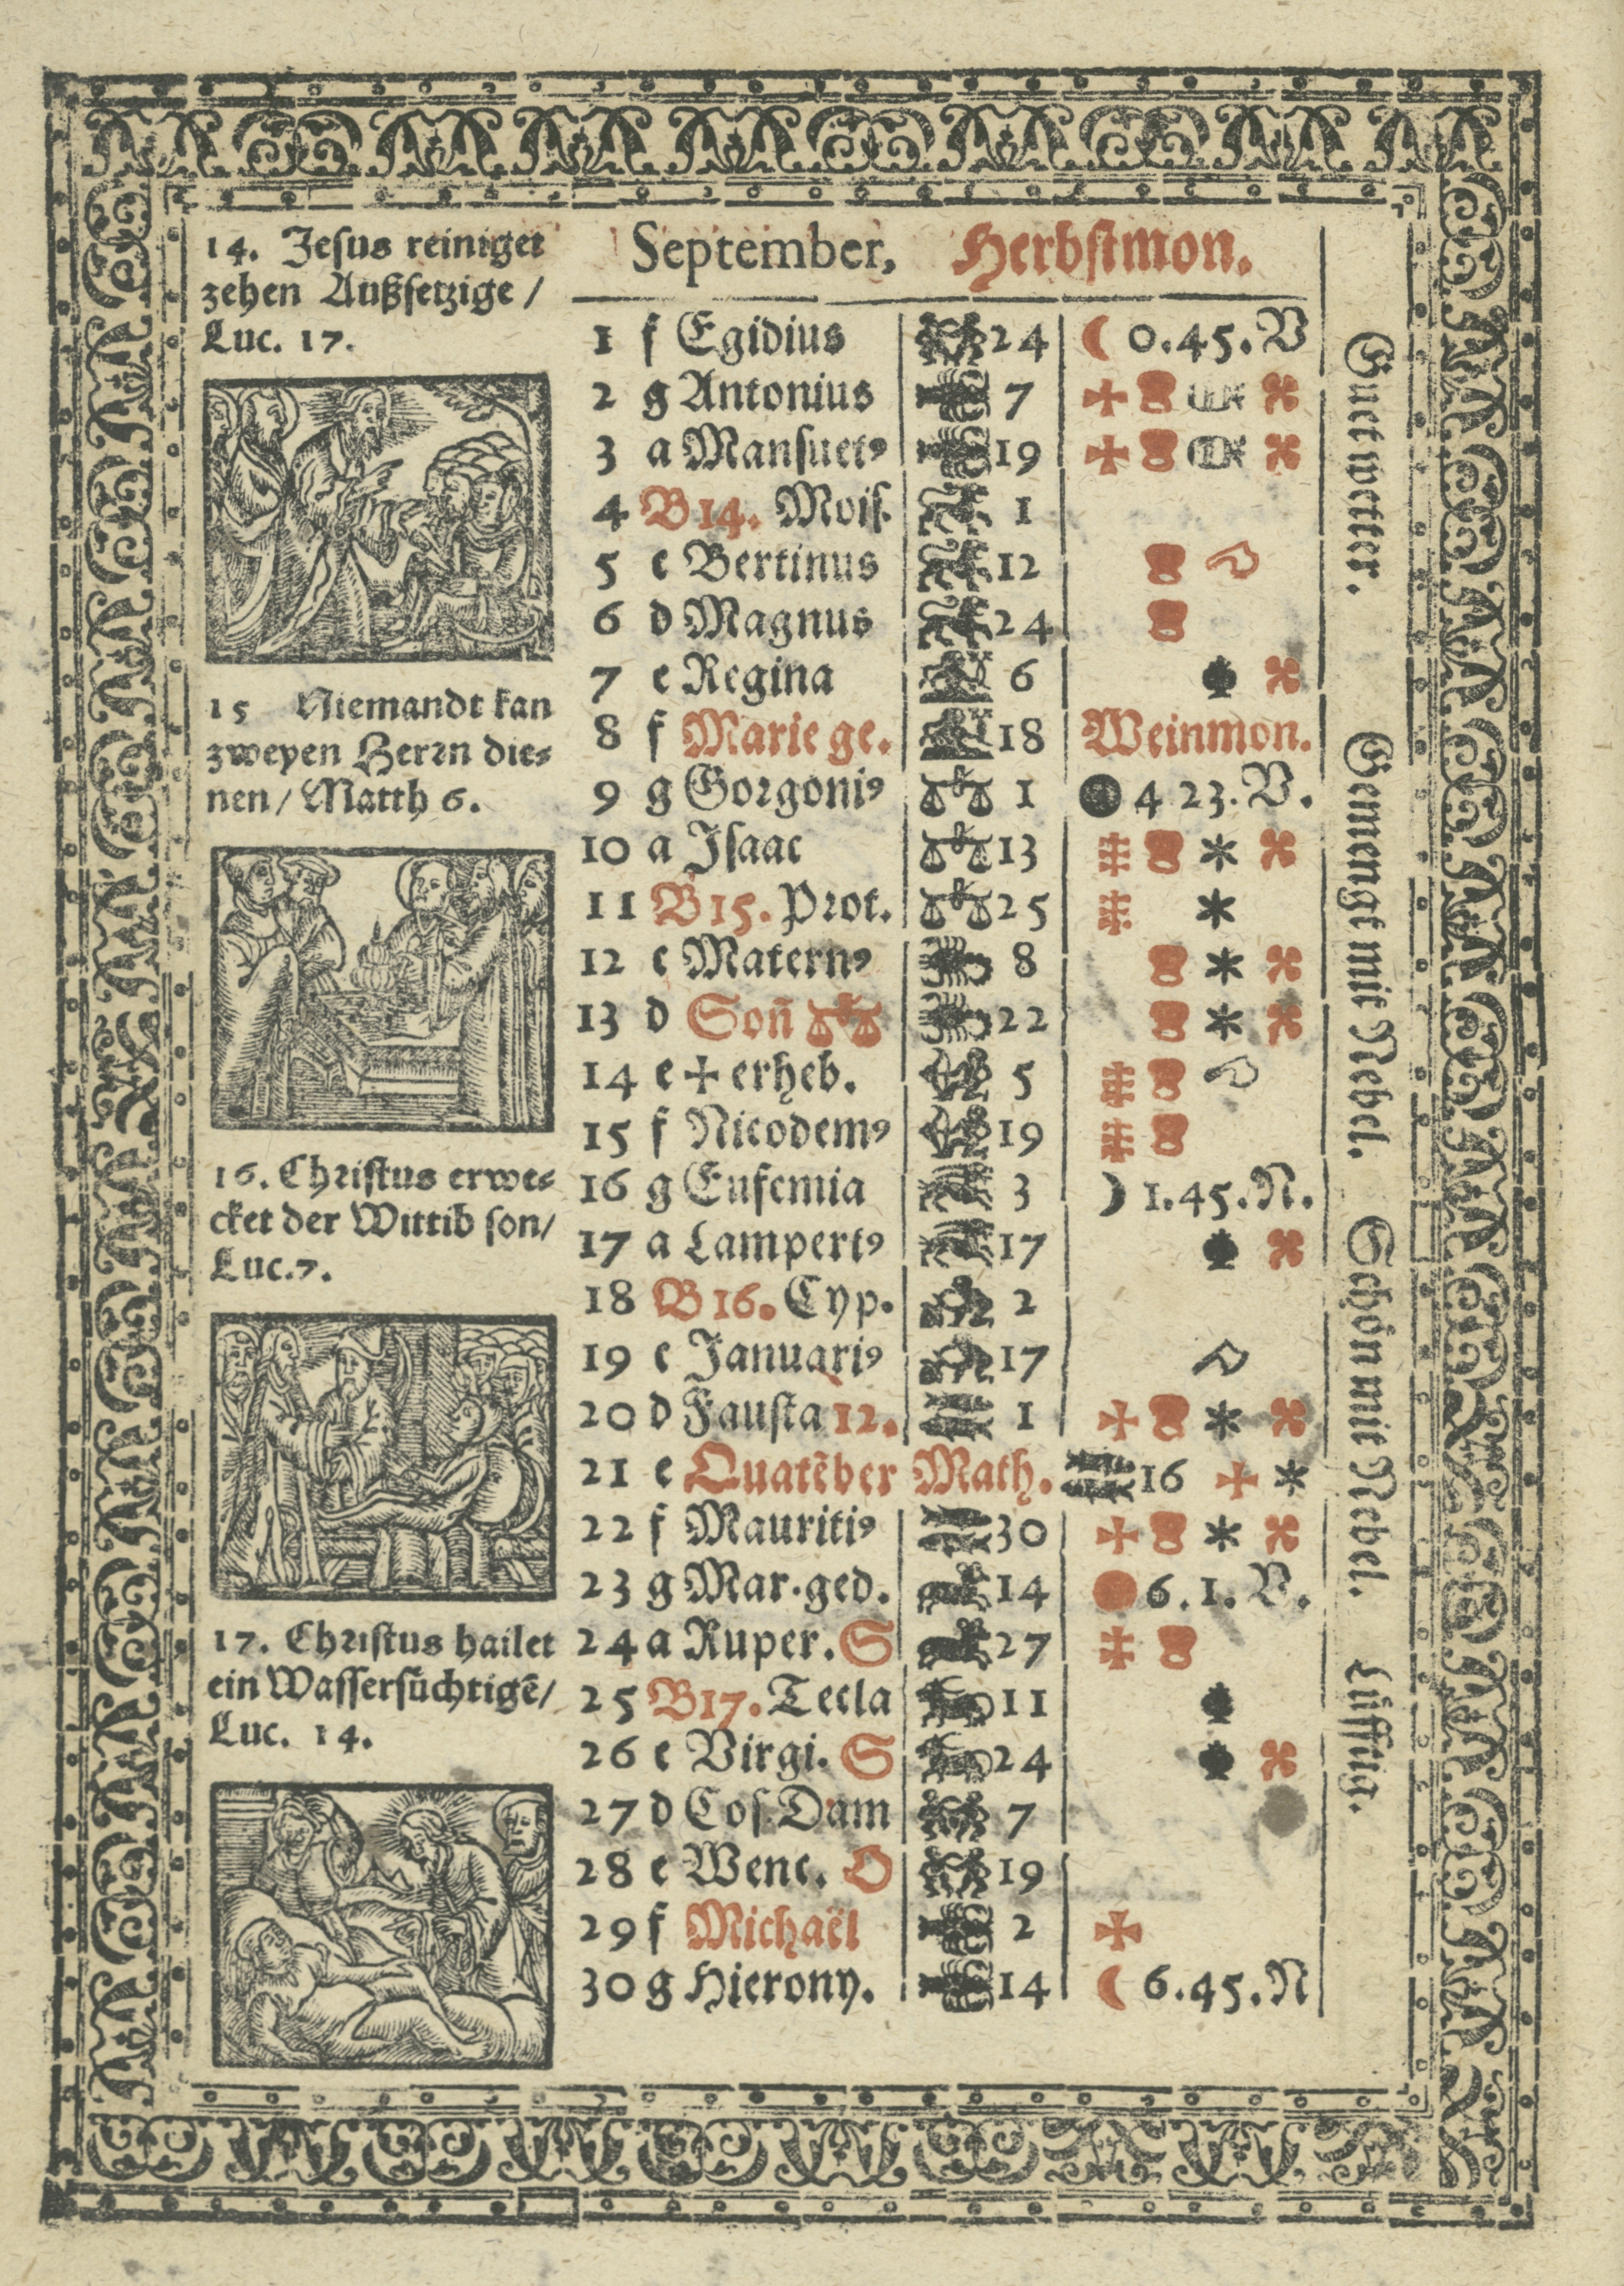 14. Jesus reiniget
zehen Außsetzige /
Luc. 17.
15 Niemandt kan
zweyen Herrn die⸗
nen / Matth 6.
16. Christus erwe⸗
cket der Wittib son /
Luc. 7.
17. Christus hailet
ein Wassersüchtigẽ /
Luc. 14.
September, Herbstmon.
1 f Egidius 24 ☾ 0.45.V
2 g Antonius 7
3 a Mansuetꝰ 19
4 B 14. Mois. 1
5 c Bertinus 12
6 d Magnus 24
7 e Regina 6
8 f Marie ge. 18 Weinmon.
9 g Gorgoniꝰ 1 4 23. V.
10 a Isaac 13
11 B 15. Prot. 25
12 c Maternꝰ 8
13 d Soñ 22
14 e ✢ erheb. 5
15 f Nicodemꝰ 19
16 g Eufemia 3 ☽ 1.45.N.
17 a Lampertꝰ 17
18 B 16. Cyp. 2
19 c Januariꝰ 17
20 d Fausta 12. 1
21 e Quatẽber Math. 16
22 f Mauritiꝰ 30
23 g Mar. ged. 14 6.1. V.
24 a Ruper. S 27
25 B 17. Tecla 11
26 c Virgi. S 24
27 d Cos. Dam 7
28 e Wenc. O 19
29 f Michaël 2
30 g Hierony. 14 ☾ 6.45.N
Guet wetter. Gemengt mit Nebel. Schön mit Nebel. Lüfftig.